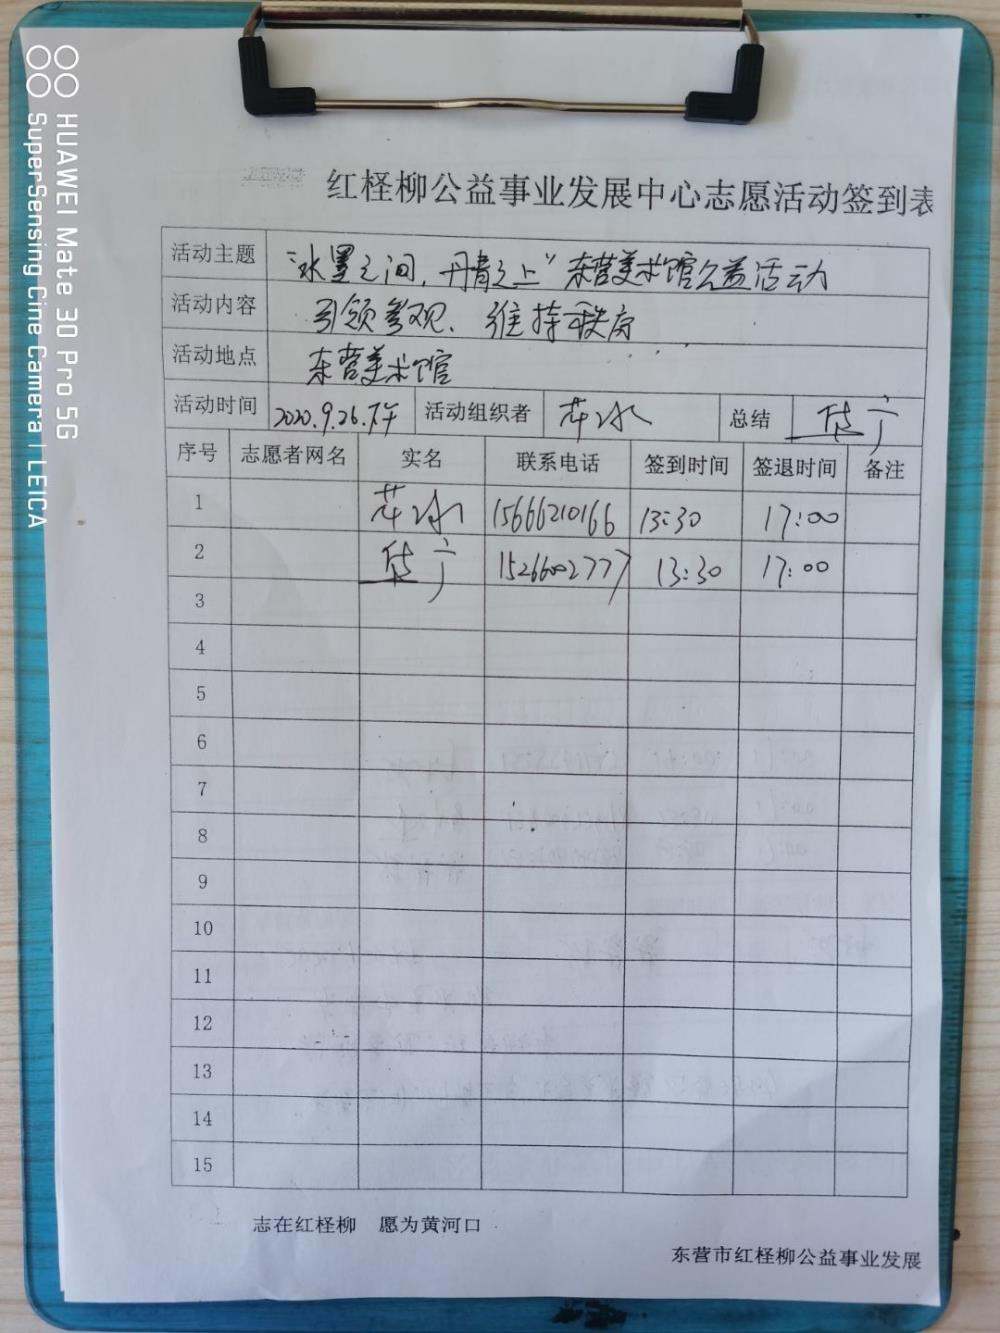 HUAWEI Mate 30 Pro 5G
SuperSensing Cine Camera | LEICA
红柽柳公益事业发展中心志愿活动签到表
活动主题 "水墨之间，丹青之上"东营美术馆公益活动
活动内容 引领参观、维持秩序
活动地点 东营美术馆
活动时间 2020.9.26.下午 活动组织者 总结
序号 志愿者网名 实名 联系电话 签到时间 签退时间 备注
1 15666210166 13:30 17:00
2 15266002777 13:30 17:00
3
4
5
6
7
8
9
10
11
12
13
14
15
志在红柽柳 愿为黄河口
东营市红柽柳公益事业发展